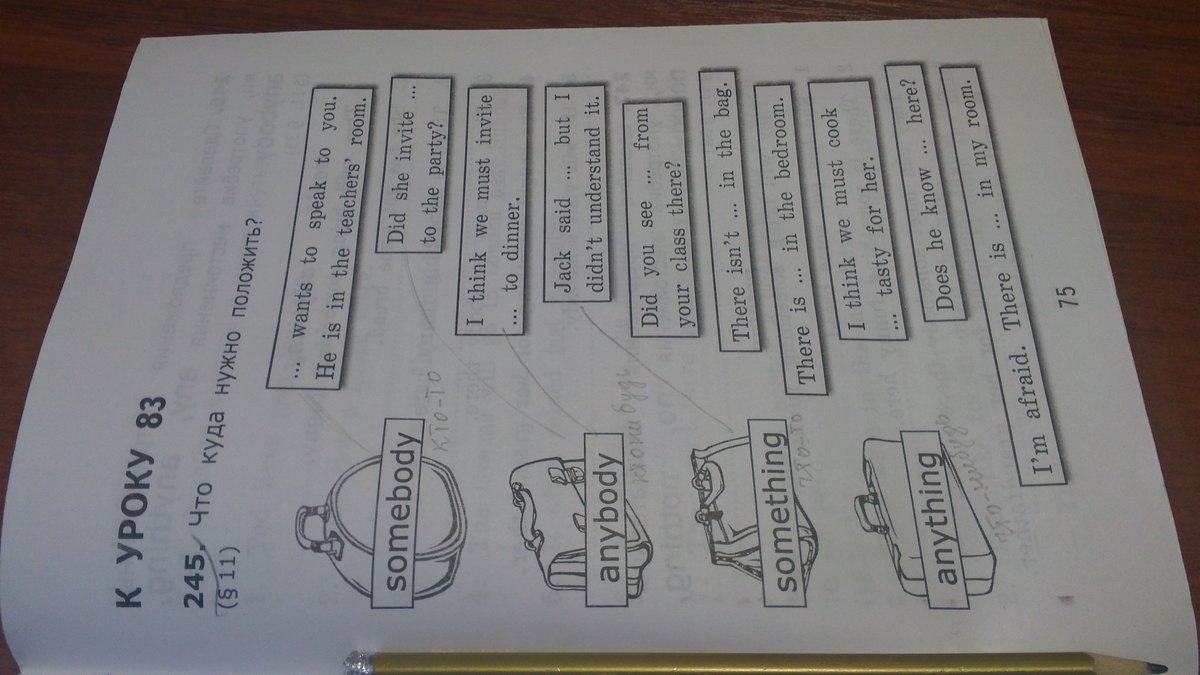 К УРОКУ 83
245. Что куда нужно положить?
(§ 11)
somebody
кто-то
anybody
something
что-то
anything
что-нибудь
... wants to speak to you.
He is in the teachers' room.
Did she invite ...
to the party?
I think we must invite
... to dinner.
Jack said ... but I
didn't understand it.
Did you see ... from
your class there?
There isn't ... in the bag.
There is ... in the bedroom.
I think we must cook
... tasty for her.
Does he know ... here?
I'm afraid. There is ... in my room.
75